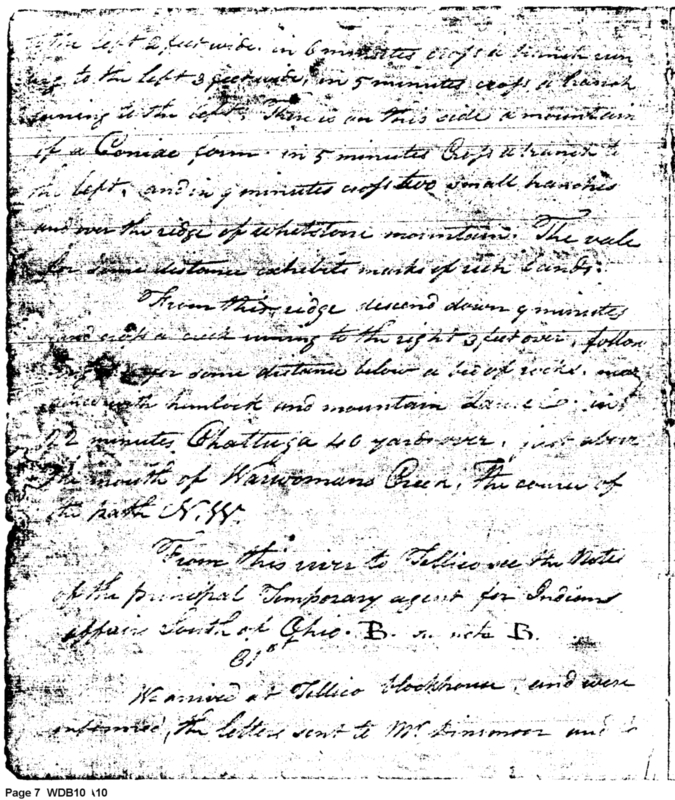 the left 2 feet wide. in 6 minutes cross a branch run
ing to the left 3 feet wide, in 5 minutes cross a branch
runing to the left. There is on this side a mountain
of a Coniac form. in 5 minutes Cross a branch to
the left, and in 9 minutes cross two small branches
and over the ridge of whetstone mountain. The vale
for some distance exhibits marks of rich lands.
From this ridge descend down 9 minutes
and cross a creek runing to the right 3 feet over, follow
for some distance below a bed of rocks,
with hemlock and mountain Laurel. in
22 minutes Chattuga 40 yards over, just above
the mouth of Warwomans Creek, the course of
the path N.W.
From this river to Tellico see the Notes
of the principal Temporary agent for Indians
affairs South of Ohio. B. note B.
31st
We arrived at Tellico blockhouse, and were
informed, the letters sent to Mr. Dinsmoor and
Page 7 WDB10 \10